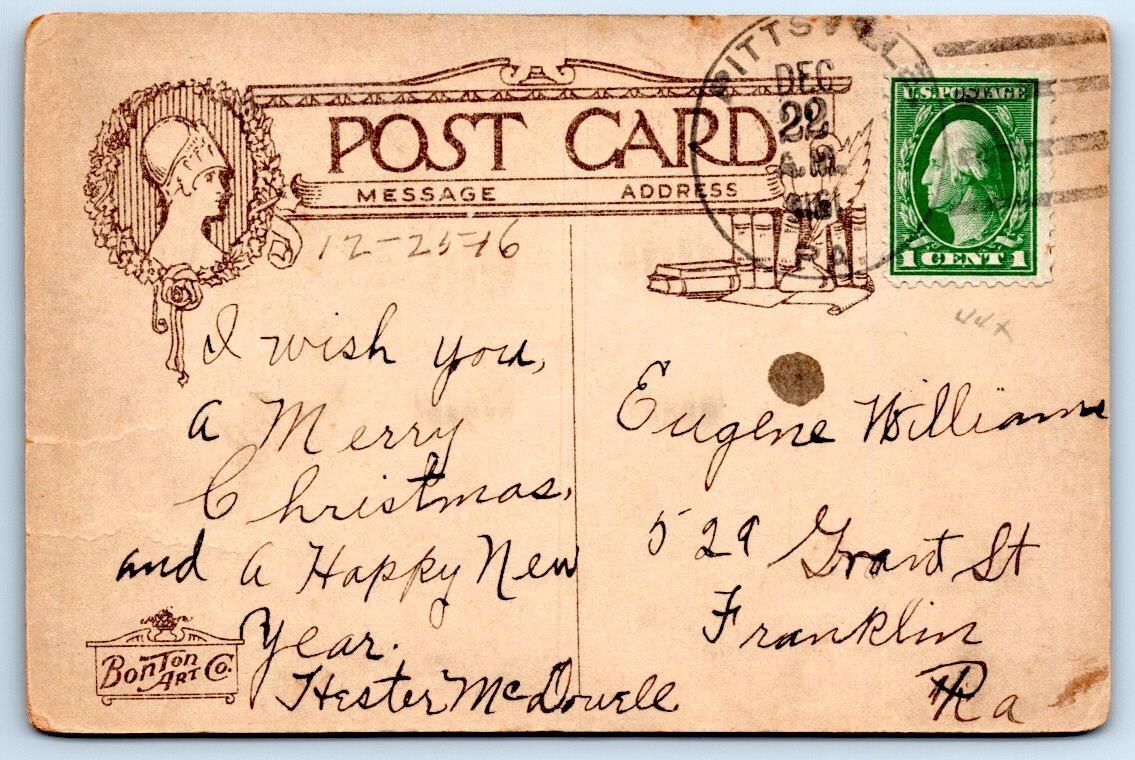 POST CARD
MESSAGE ADDRESS
PITTSVILLE
DEC
22
A.M.
PA.
U.S. POSTAGE
1 CENT 1
12-25-16
44x
I wish you,
a Merry
Christmas,
and a Happy New
Year.
Hester McDowell
Eugene Williams
529 Grant St
Franklin
Pa
BONTON
ART CO.